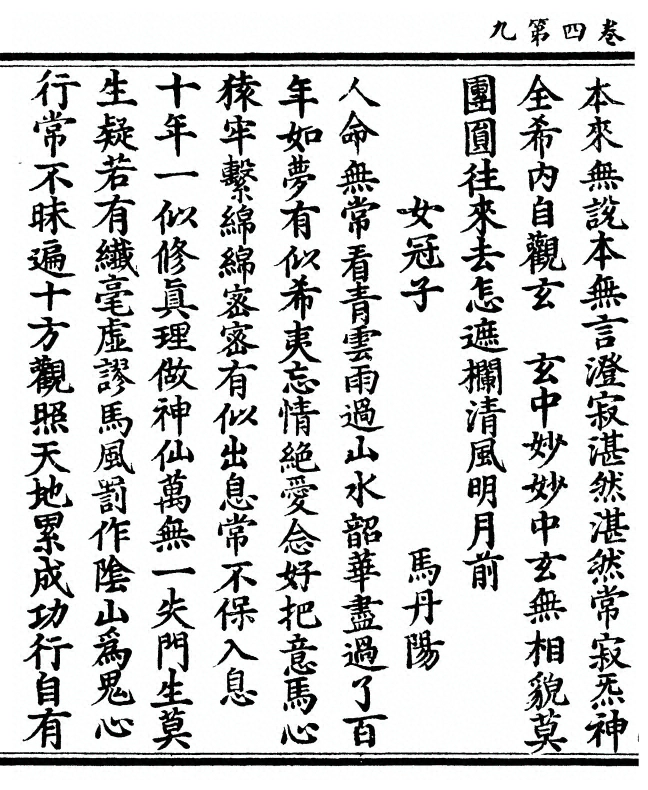 卷四第九
本來無說本無言澄寂湛然湛然常寂炁神
全希內自觀玄　玄中妙妙中玄無相貌莫
團圓往來去怎遮攔清風明月前
女冠子　馬丹陽
人命無常看青雲雨過山水韶華盡過了百
年如夢有似希夷忘情絕愛念好把意馬心
猿牢繫綿綿密密有似出息常不保入息
十年一似修眞理做神仙萬無一失門生莫
生疑若有纖毫虛謬馬風罰作陰山爲鬼心
行常不昧遍十方觀照天地累成功行自有